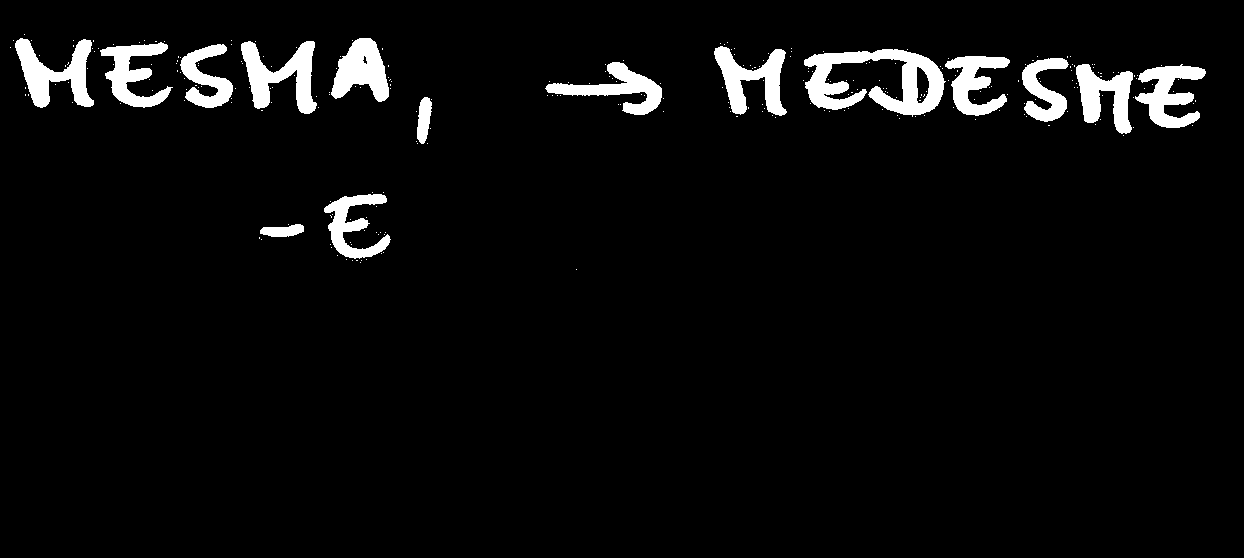 MESMA, → MEDESME
-E